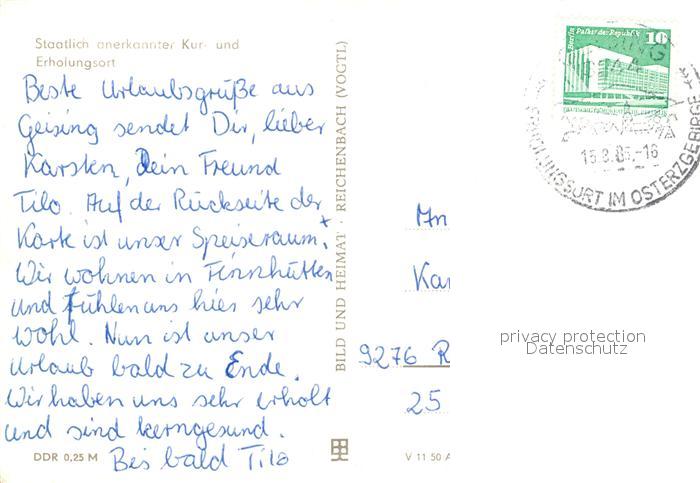 Staatlich anerkannter Kur- und
Erholungsort
Beste Urlaubsgrüße aus
Geising sendet Dir, lieber
Karsten, Dein Freund
Tilo. Auf der Rückseite der
Karte ist unser Speiseraum.
Wir wohnen in Finnhütten
und fühlen uns hier sehr
wohl. Nun ist unser
Urlaub bald zu Ende.
Wir haben uns sehr erholt
und sind kerngesund.
Bis bald Tilo
DDR 0,25 M
BILD UND HEIMAT · REICHENBACH (VOGTL)
V 11 50 A
An
Kar
9276 R
25
Berlin Palast der Republik
10
15.8.85.-16
ERHOLUNGSORT IM OSTERZGEBIRGE
privacy protection
Datenschutz